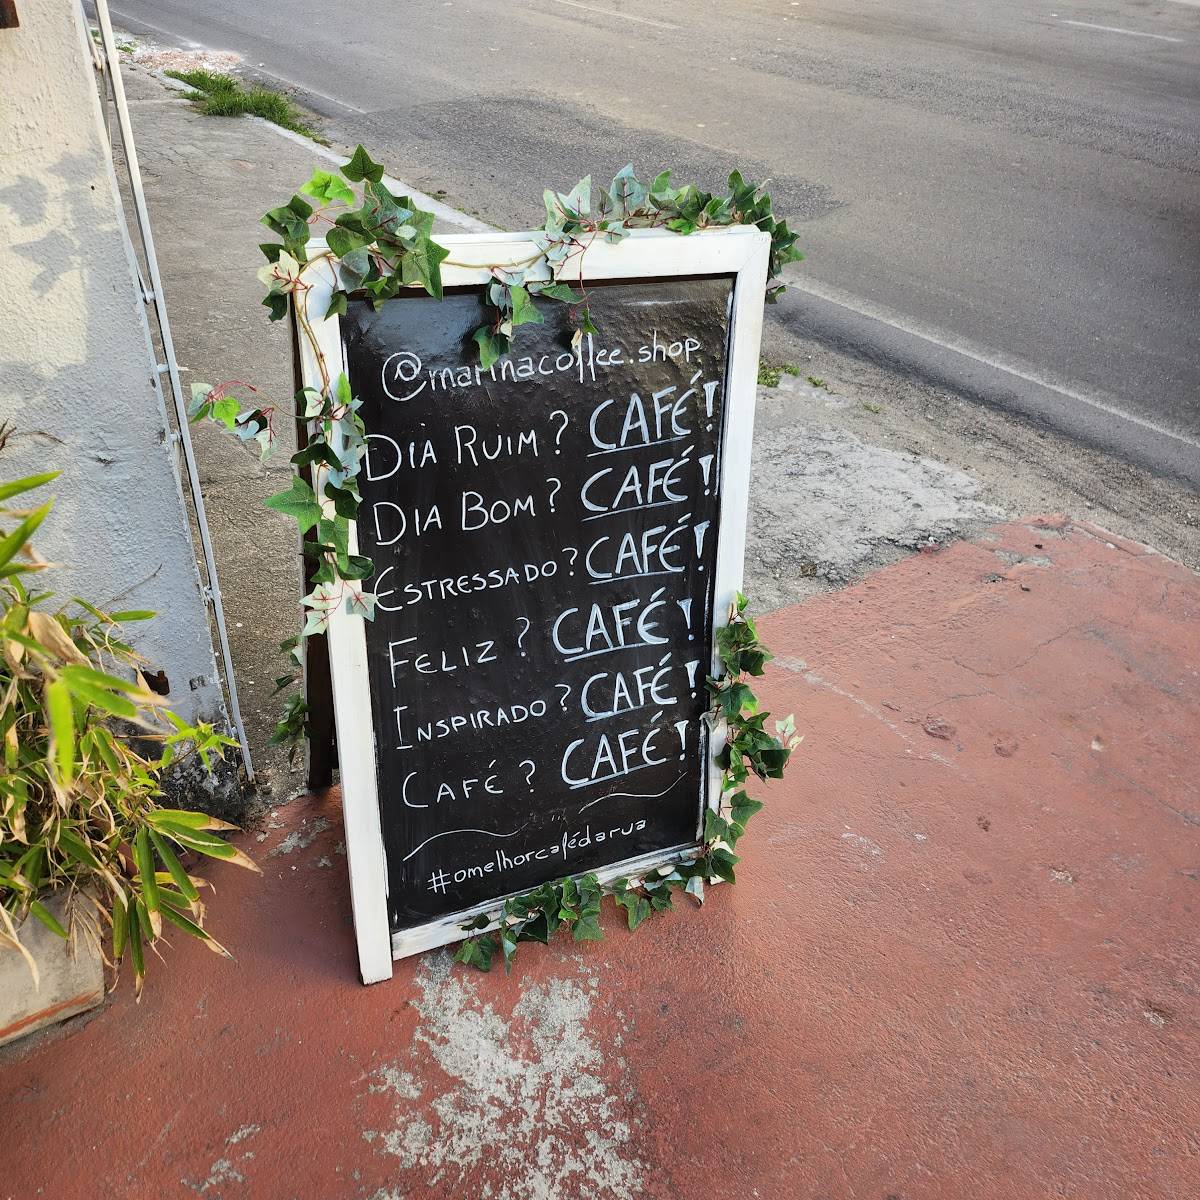 @marinacoffee.shop
DIA RUIM? CAFÉ!
DIA BOM? CAFÉ!
ESTRESSADO? CAFÉ!
FELIZ? CAFÉ!
INSPIRADO? CAFÉ!
CAFÉ? CAFÉ!
#omelhorcafédarua